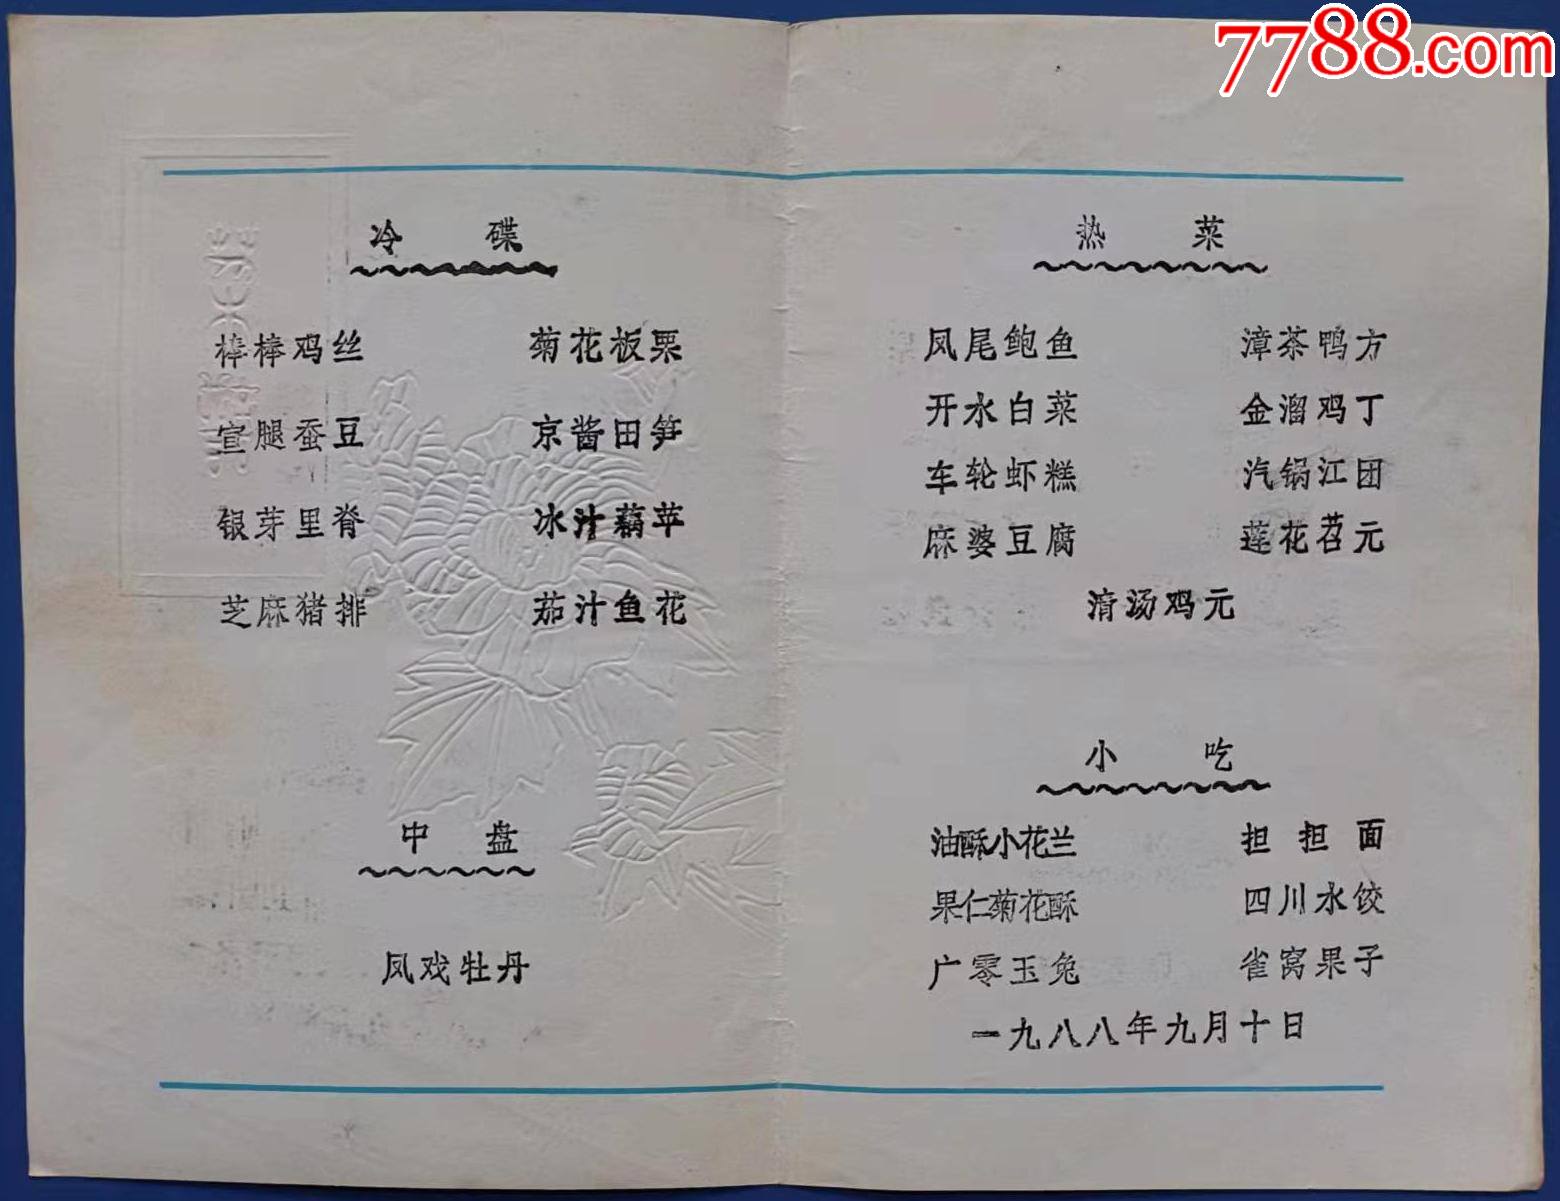 7788.com
冷碟
棒棒鸡丝 菊花板栗
宣腿蚕豆 京酱田笋
银芽里脊 冰汁藕苹
芝麻猪排 茄汁鱼花
中盘
凤戏牡丹
热菜
凤尾鲍鱼 漳茶鸭方
开水白菜 金溜鸡丁
车轮虾糕 汽锅江团
麻婆豆腐 莲花苕元
清汤鸡元
小吃
油酥小花兰 担担面
果仁菊花酥 四川水饺
广零玉兔 雀窝果子
一九八八年九月十日